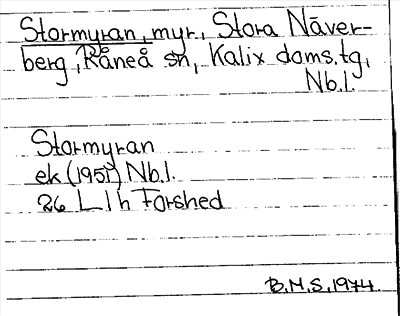 Stormyran, myr, Stora Näver-
berg, Råneå sn, Kalix doms.tg,
Nb.l.
Stormyran
ek (1951) Nb.l.
26 L l h Forshed
B.M.S. 1974